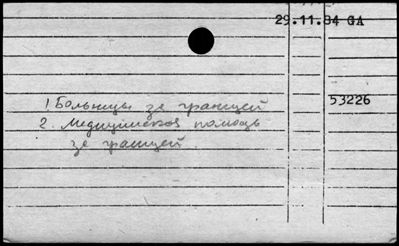 29.11.84 GA
1. Больницы за границей 53226
2. Медицинская помощь
за границей.